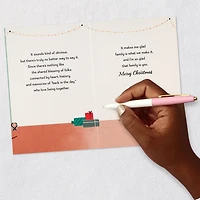 It sounds kind of obvious,
but there's truly no better way to say it.
Since there's nothing like
the shared blessing of folks
connected by heart, history
and memories of "back in the day,"
who love being together.
It makes me glad
family is what we make it,
and I'm so glad
that family is you.
Merry Christmas